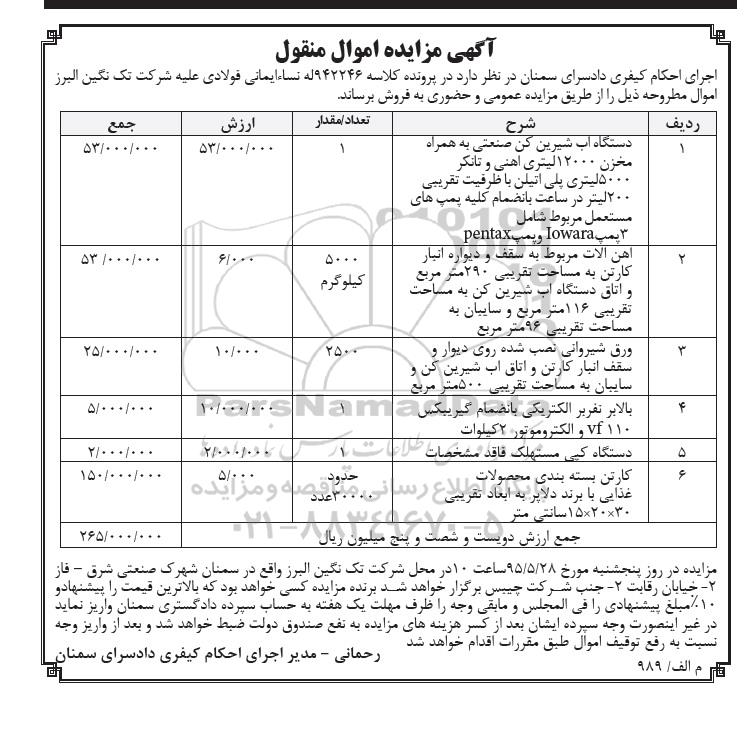 آگهی مزایده اموال منقول
اجرای احکام کیفری دادسرای سمنان در نظر دارد در پرونده کلاسه ۹۴۲۲۴۶له نساءایمانی فولادی علیه شرکت تک نگین البرز
اموال مطروحه ذیل را از طریق مزایده عمومی و حضوری به فروش برساند.
ردیف شرح تعداد/مقدار ارزش جمع
۱ دستگاه اب شیرین کن صنعتی به همراه ۱ ۵۳/۰۰۰/۰۰۰ ۵۳/۰۰۰/۰۰۰
مخزن ۱۲۰۰۰لیتری اهنی و تانکر
۵۰۰۰لیتری پلی اتیلن با ظرفیت تقریبی
۲۰۰لیتر در ساعت بانضمام کلیه پمپ های
مستعمل مربوط شامل
۳پمپIowara وپمپpentax
۲ اهن الات مربوط به سقف و دیواره انبار ۵۰۰۰ ۶/۰۰۰ ۵۳ /۰۰۰/۰۰۰
کارتن به مساحت تقریبی ۲۹۰متر مربع کیلوگرم
و اتاق دستگاه اب شیرین کن به مساحت
تقریبی ۱۱۶متر مربع و سایبان به
مساحت تقریبی ۹۶متر مربع
۳ ورق شیروانی نصب شده روی دیوار و ۲۵۰۰ ۱۰/۰۰۰ ۲۵/۰۰۰/۰۰۰
سقف انبار کارتن و اتاق اب شیرین کن و
سایبان به مساحت تقریبی ۵۰۰متر مربع
۴ بالابر نفربر الکتریکی بانضمام گیربیکس ۱ ۱۰/۰۰۰/۰۰۰ ۵/۰۰۰/۰۰۰
vf ۱۱۰ و الکتروموتور ۲کیلوات
۵ دستگاه کپی مستهلک فاقد مشخصات ۱ ۲/۰۰۰/۰۰۰ ۲/۰۰۰/۰۰۰
۶ کارتن بسته بندی محصولات حدود ۵/۰۰۰ ۱۵۰/۰۰۰/۰۰۰
غذایی با برند دلاپر به ابعاد تقریبی ۳۰۰۰۰عدد
۳۰×۲۰×۱۵سانتی متر
جمع ارزش دویست و شصت و پنج میلیون ریال ۲۶۵/۰۰۰/۰۰۰
مزایده در روز پنجشنبه مورخ ۹۵/۵/۲۸ساعت ۱۰در محل شرکت تک نگین البرز واقع در سمنان شهرک صنعتی شرق – فاز
۲- خیابان رقابت ۲- جنب شرکت چیپس برگزار خواهد شد برنده مزایده کسی خواهد بود که بالاترین قیمت را پیشنهادو
۱۰٪مبلغ پیشنهادی را فی المجلس و مابقی وجه را ظرف مهلت یک هفته به حساب سپرده دادگستری سمنان واریز نماید
در غیر اینصورت وجه سپرده ایشان بعد از کسر هزینه های مزایده به نفع صندوق دولت ضبط خواهد شد و بعد از واریز وجه
نسبت به رفع توقیف اموال طبق مقررات اقدام خواهد شد
رحمانی – مدیر اجرای احکام کیفری دادسرای سمنان
م الف/ ۹۸۹
ParsNamadData
پایگاه اطلاع رسانی مناقصه و مزایده
۰۲۱-۸۸۳۴۹۶۷۰-۵